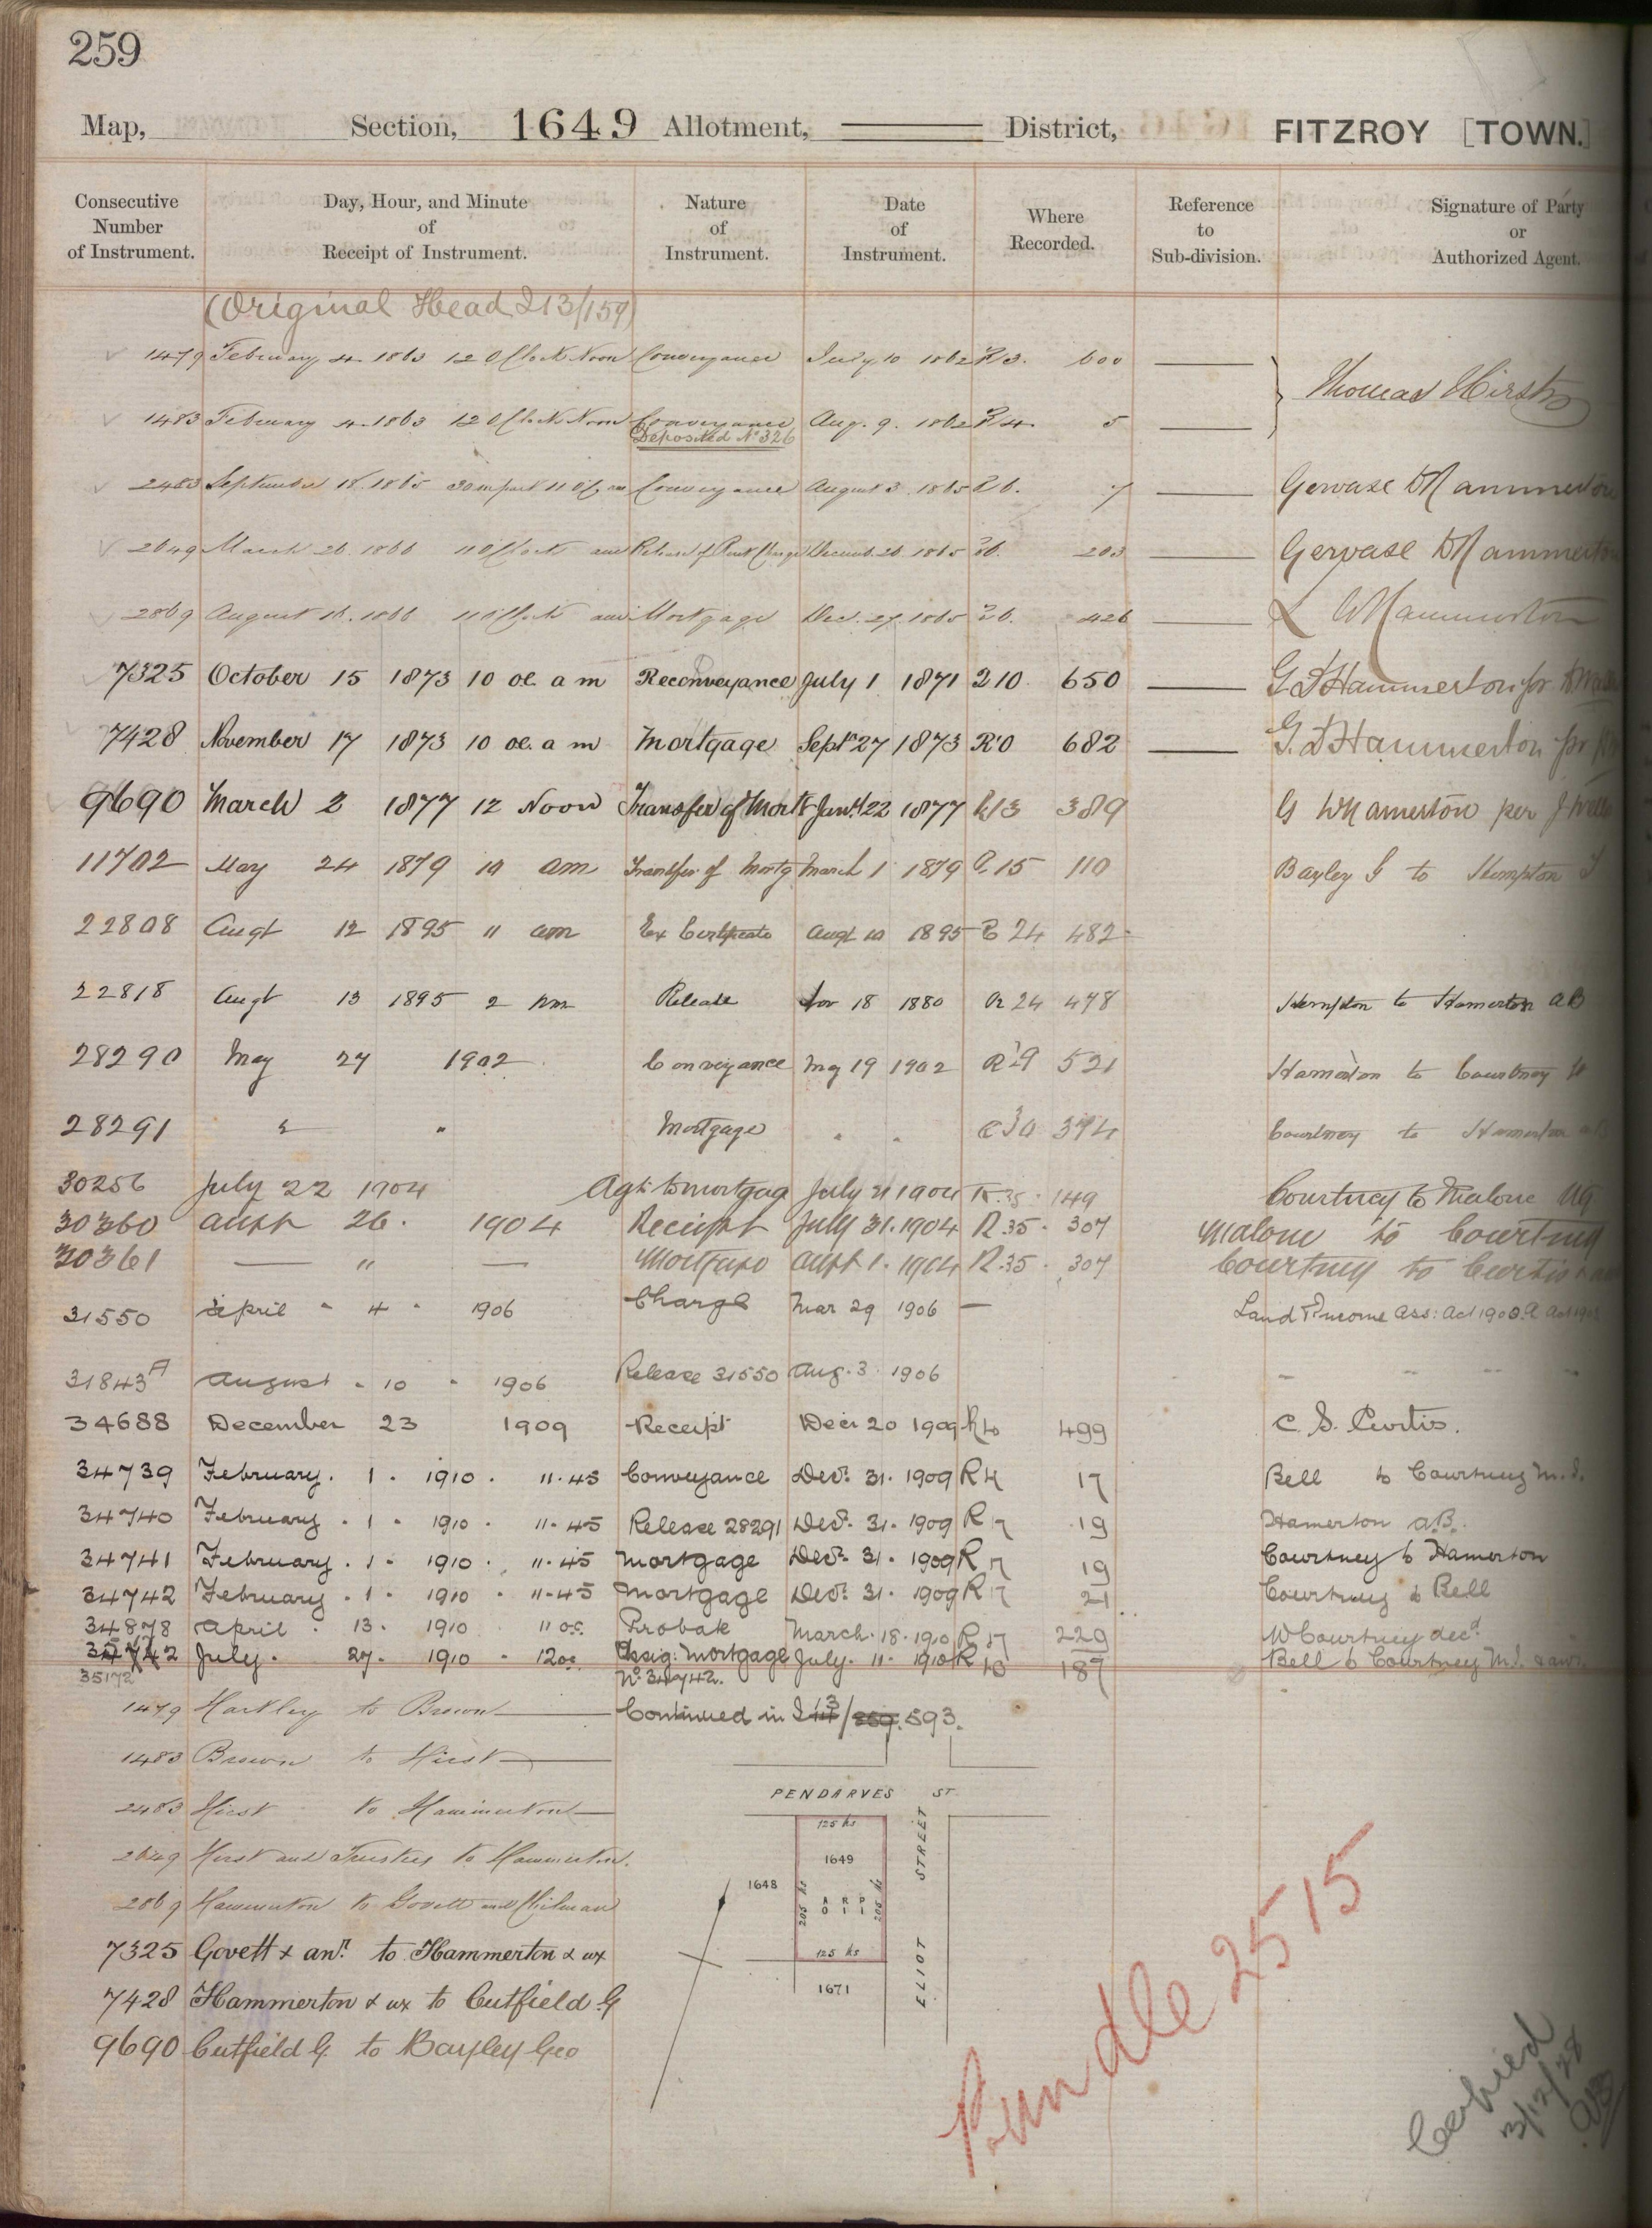 259
Map, Section, 1649 Allotment, District, FITZROY [TOWN.]
Consecutive Number of Instrument. Day, Hour, and Minute of Receipt of Instrument. Nature of Instrument. Date of Instrument. Where Recorded. Reference to Sub-division. Signature of Party or Authorized Agent.
(Original Head 213/159)
1479 February 4 1863 12 O'Clock Noon Conveyance July 10 1862 R 3. 600
Thomas Hirst
1483 February 4 1863 12 O'Clock Noon Conveyance Aug. 9. 1862 R 4. 5
Deposited No 326
2483 September 18 1865 30 m past 11 Conveyance August 3 1865 R 6. 7 Gervase
2649 March 26. 1866 11 O'Clock am Release of Rent Charge Decemb. 26. 1865 R 6. 203 Gervase
2869 August 16. 1866 11 O'Clock am Mortgage Dec. 27. 1865 R 6. 426
7325 October 15 1873 10 oc. a m Reconveyance July 1 1871 R 10 650 G Hammerton pr
7428 November 17 1873 10 oc. a m Mortgage Septr 27 1873 R 10 682 G. Hammerton pr
9690 March 2 1877 12 Noon Transfer of Mortg Jany 22 1877 R 13 389 G per
11702 May 24 1879 10 am Transfer of Mortg March 1 1879 R 15 110 Bayley G to
22808 Augt 12 1895 11 am Ex Certificate Augt 10 1895 R 24 482
22818 Augt 13 1895 2 pm Release Nov 18 1880 R 24 478 to Hamerton A B
28290 May 27 1902 Conveyance May 19 1902 R 29 521 Hamerton to Courtney
28291 " " Mortgage " " R 30 374 Courtney to Hamerton
30256 July 22 1904 Agt to mortgag July 21 1904 R. 35. 149 Courtney to Malone
30360 Augt 26. 1904 Receipt July 31. 1904 R. 35. 307 Malone to Courtney
30361 — " — Mortgage Augt 1. 1904 R. 35. 307 Courtney to Curtis
31550 April " 4 " 1906 Charge Mar 29 1906 — Land & Income Ass: Act 1900 & Act
31843A August " 10 " 1906 Release 31550 Aug. 3. 1906
34688 December 23 1909 Receipt Decr 20 1909 R 40 499 C. S. Curtis.
34739 February. 1. 1910. 11.45 Conveyance Decr. 31. 1909 R 17 Bell to Courtney M. J.
34740 February. 1. 1910. 11.45 Release 28291 Decr. 31. 1909 R 19 Hamerton A.B.
34741 February. 1. 1910. 11.45 Mortgage Decr. 31. 1909 R 19 Courtney to Hamerton
34742 February. 1. 1910. 11.45 Mortgage Decr. 31. 1909 R 21 Courtney to Bell
34878 April. 13. 1910. 11 oc. Probate March. 18. 1910 R 229 W Courtney decd
July. 27. 1910. 12 oc Assig: Mortgage July. 11. 1910 R 187 Bell to Courtney M. J. & anr.
35172 No. 34742.
1479 Hartley to Brown Continued in 593.
1483 Brown to Hirst
2483 Hirst to Hammerton
2649 Hirst and Trustees to Hammerton.
2869 Hammerton to Govett and
7325 Govett & anr. to Hammerton & ux
7428 Hammerton & ux to Cutfield G
9690 Cutfield G. to Bayley Geo
PENDARVES ST
125 lks
1649
1648
205 lks
A R P
0 1 1
205 lks
125 lks
1671
ELIOT STREET
Bundle 2515
Copied
3/12/28